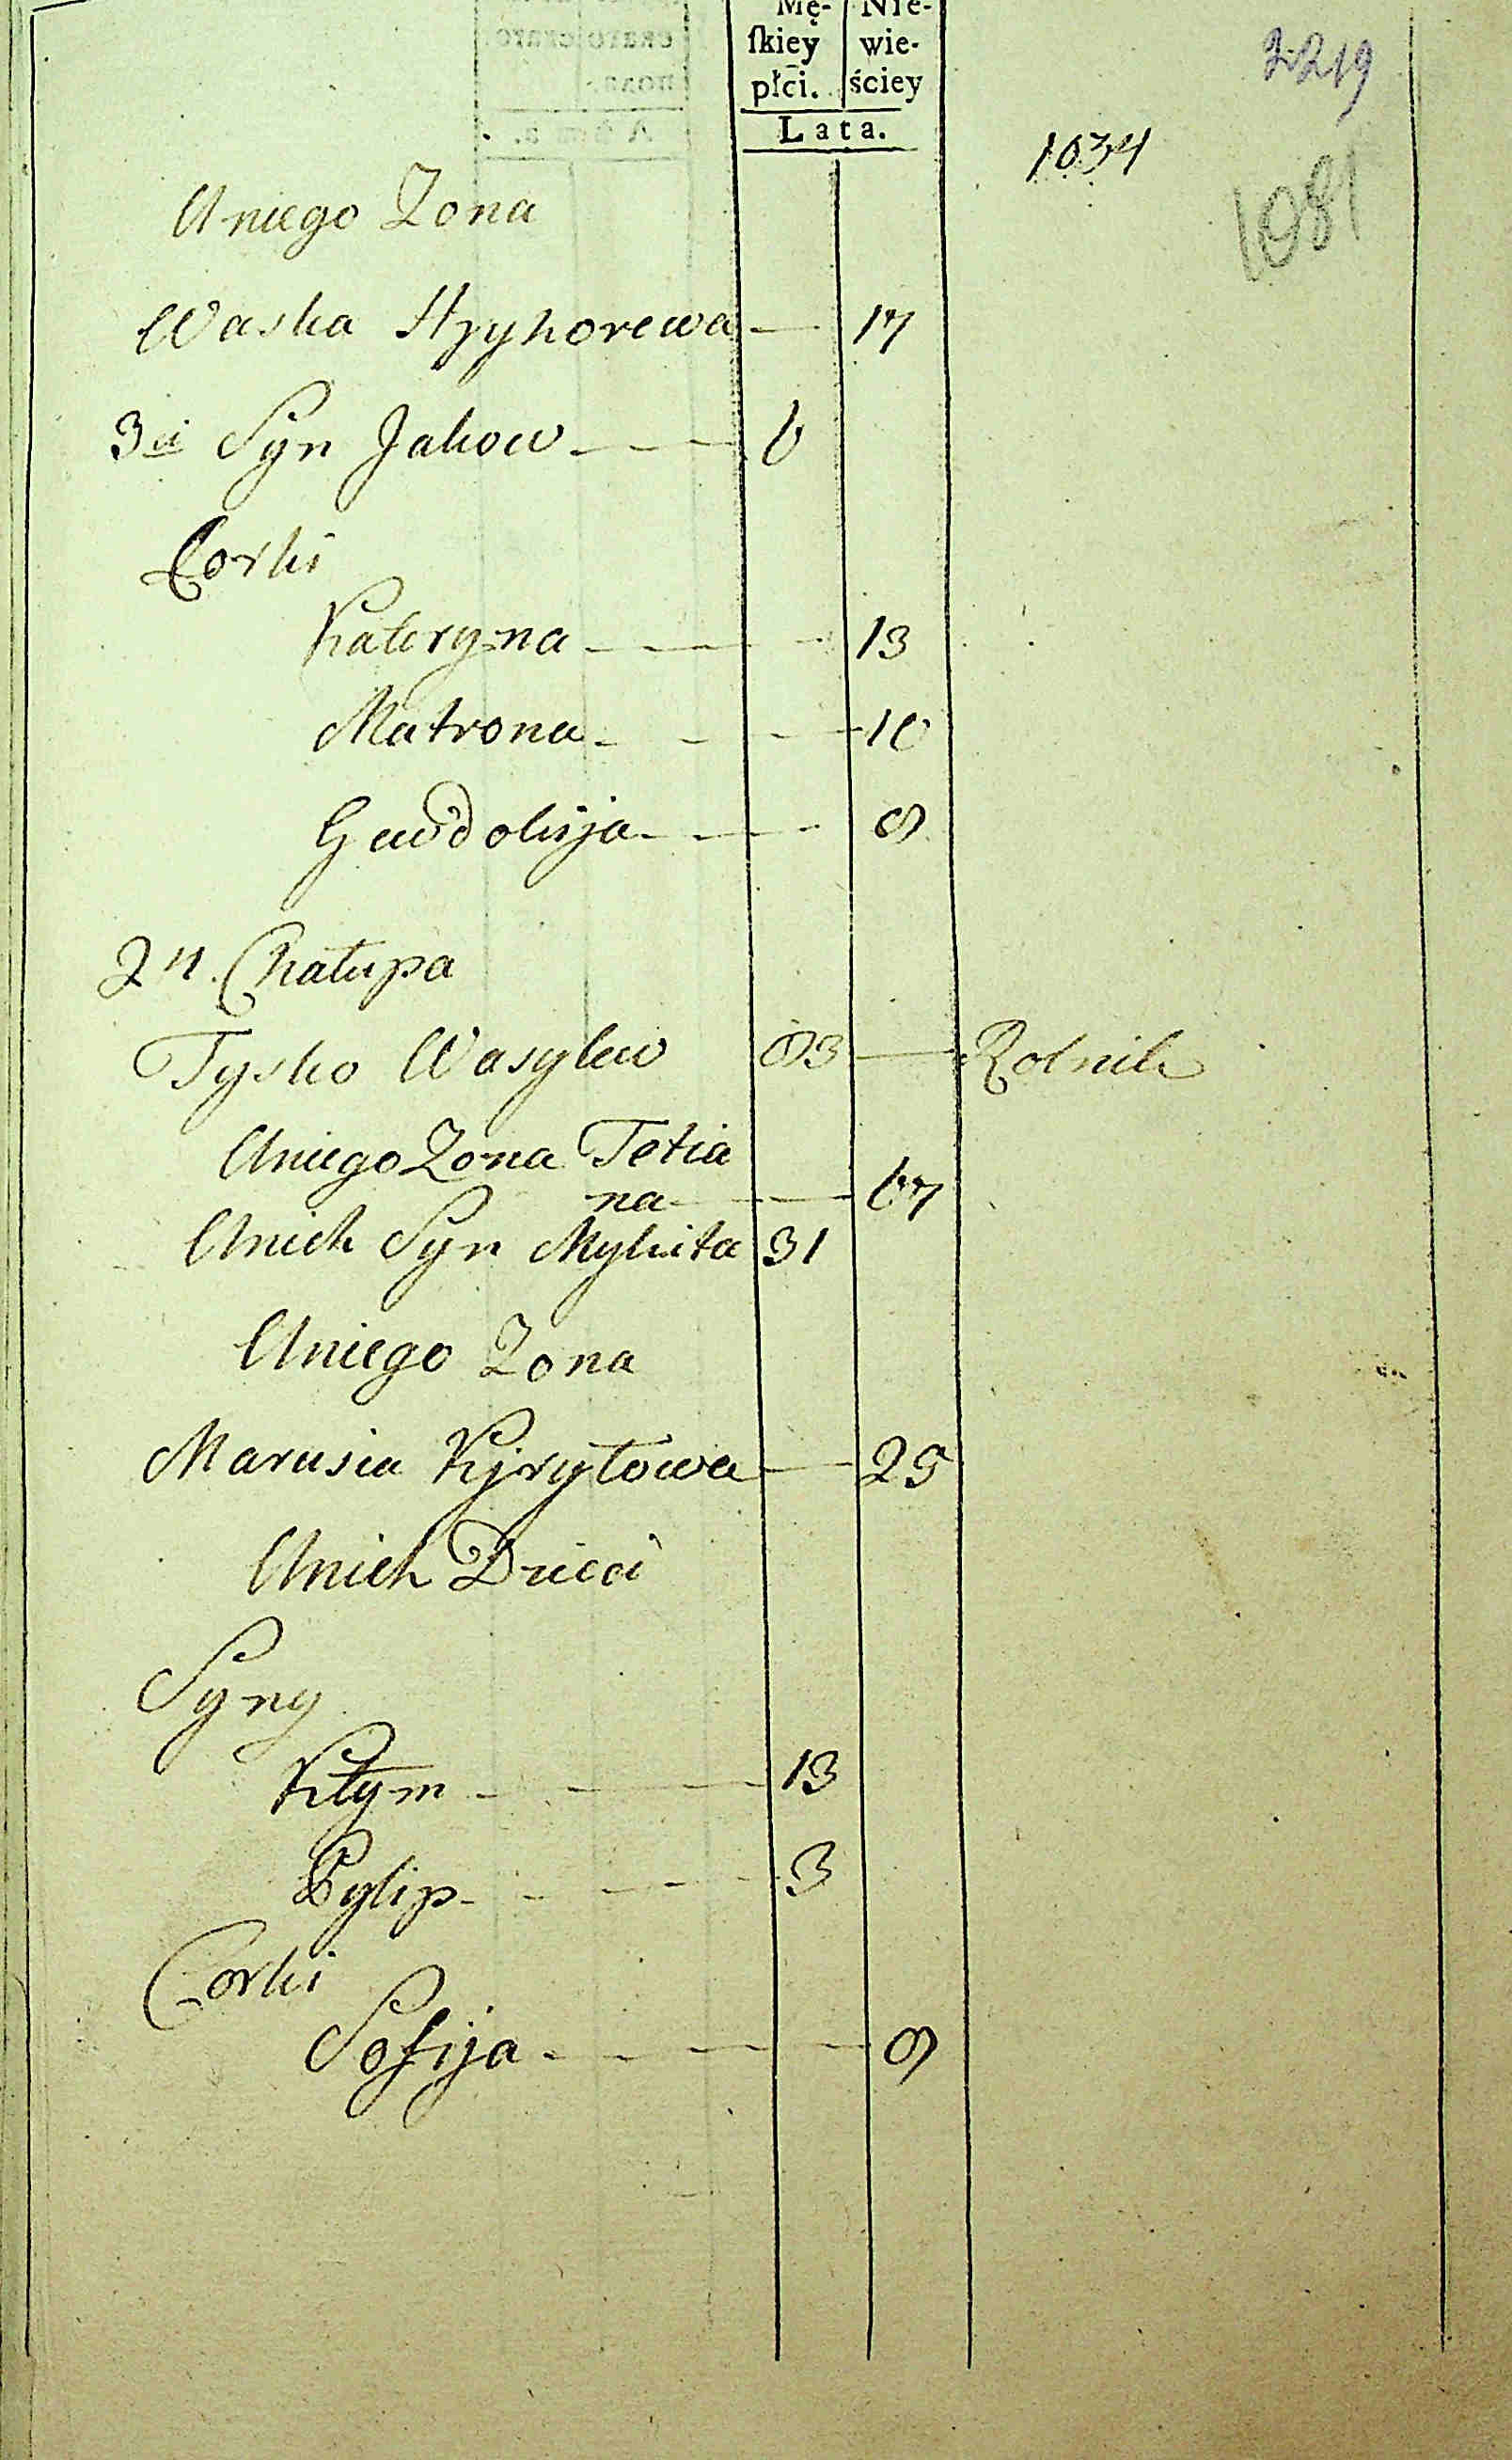 Mę- Nie-
skiey wie-
płci. ściey
Lata.
3219
1034
1081
Uniego Zona
Waska Hryhorewa — 17
3ci Syn Jakow — 6
Corki
Kateryna — 13
Matrona — 10
Hawdokija — 8
24. Chałupa
Tysko Wasylew 83 — Rolnik
Uniego Zona Tetia
na — 67
Unich Syn Mykita 31
Uniego Zona
Marusia Kjryłowa — 25
Unich Dzieci
Syny
Kłym — 13
Pylip — 3
Corki
Sofija — 8